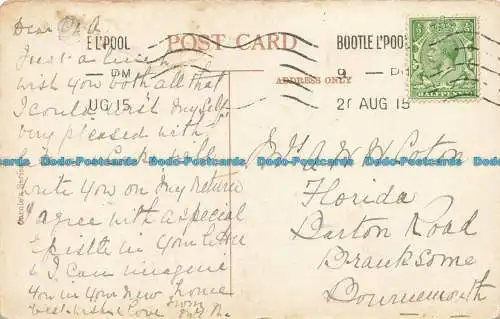 Dear
E L'POOL
POST CARD
BOOTLE L'POOL
PM
ADDRESS ONLY
9 PM
UG 15
20 AUG 15
HALFPENNY
Just a line
wish you both all that
I could wish myself
very pleased with
write you on my return
I agree with a special
Epistle in your letter
& I can imagine
you in your New home
best wishes & love from
Mrs A W W Coton
Florida
Darton Road
Branksome
Bournemouth
Dodo-Postcards Dodo-Postcards Dodo-Postcards Dodo-Postcards Dodo-Postcards
Dodo-Postcards Dodo-Postcards Dodo-Postcards Dodo-Postcards Dodo-Postcards